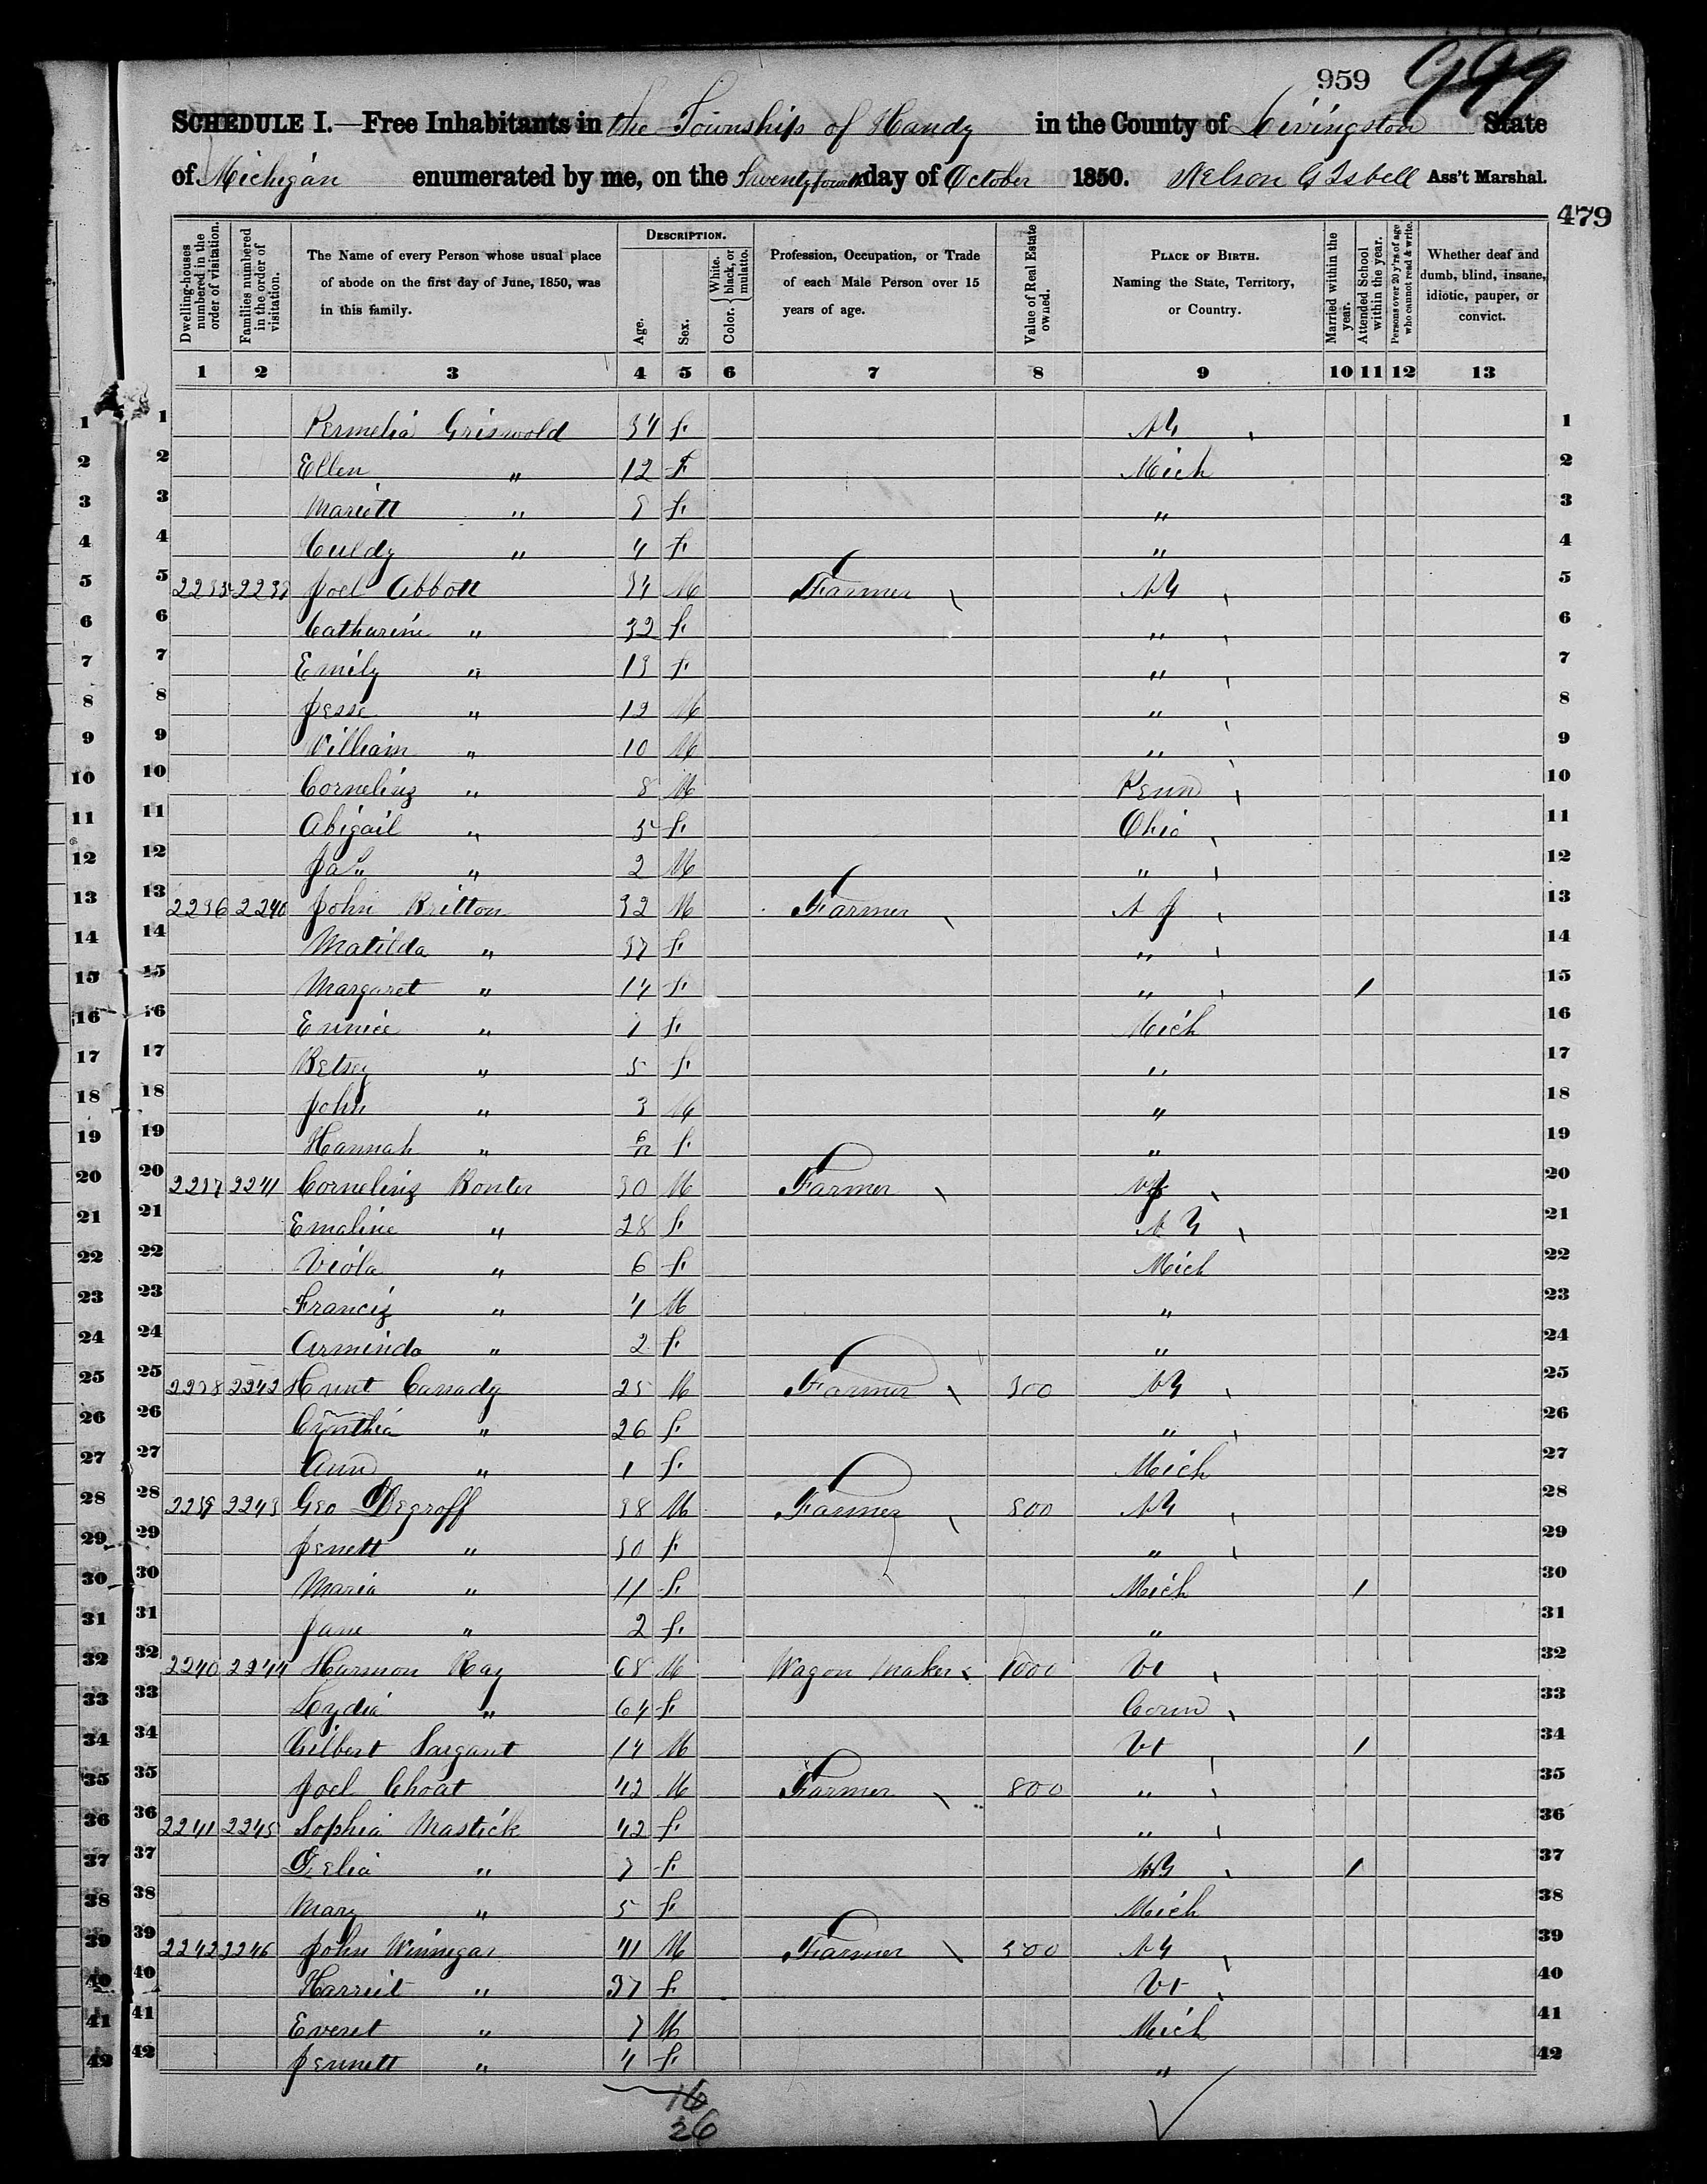 959 999
SCHEDULE I.—Free Inhabitants in the Township of Handy in the County of Livingston State
of Michigan enumerated by me, on the Twenty fourth day of October 1850. Nelson G Isbell Ass't Marshal.
479
Dwelling-houses numbered in the order of visitation. Families numbered in the order of visitation. The Name of every Person whose usual place of abode on the first day of June, 1850, was in this family. DESCRIPTION. Age. Sex. Color. { White, black, or mulatto. Profession, Occupation, or Trade of each Male Person over 15 years of age. Value of Real Estate owned. PLACE OF BIRTH. Naming the State, Territory, or Country. Married within the year. Attended School within the year. Persons over 20 y'rs of age who cannot read & write. Whether deaf and dumb, blind, insane, idiotic, pauper, or convict.
1 2 3 4 5 6 7 8 9 10 11 12 13
1 Permelia Griswold 34 F. NY 1
2 Ellen " 12 F Mich 2
3 Mariett " 8 F. " 3
4 Huldy " 4 F. " 4
5 2235 2239 Joel Abbott 34 M Farmer NY 5
6 Catharine " 32 F. " 6
7 Emily " 13 F. " 7
8 Jesse " 12 M " 8
9 William " 10 M " 9
10 Cornelius " 8 M Penn 10
11 Abigail " 5 F. Ohio 11
12 Jas " 2 M " 12
13 2236 2240 John Britton 32 M Farmer N J 13
14 Matilda " 37 F. " 14
15 Margaret " 14 F. " 1 15
16 Eunice " 7 F. Mich 16
17 Betsey " 5 F. " 17
18 John " 3 M " 18
19 Hannah " 6/12 F. " 19
20 2237 2241 Cornelius Bonter 30 M Farmer NJ 20
21 Emaline " 28 F. N Y 21
22 Viola " 6 F. Mich 22
23 Francis " 4 M " 23
24 Arminda " 2 F. " 24
25 2238 2242 Hunt Canady 25 M Farmer 300 NY 25
26 Cynthia " 26 F. " 26
27 Ann " 1 F. Mich 27
28 2239 2243 Geo Degroff 38 M Farmer 800 NY 28
29 Jenett " 30 F. " 29
30 Maria " 11 F. Mich 1 30
31 Jane " 2 F. " 31
32 2240 2244 Harmon Ray 68 M Wagon Maker 1000 Vt 32
33 Lydia " 64 F. Conn 33
34 Gilbert Sargant 14 M Vt 1 34
35 Joel Choat 42 M Farmer 800 " 35
36 2241 2245 Sophia Mastick 42 F. " 36
37 Delia " 7 F. NY 1 37
38 Mary " 5 F. Mich 38
39 2242 2246 John Winnegar 41 M Farmer 500 NY 39
40 Harriet " 37 F. Vt 40
41 Everet " 7 M Mich 41
42 Jennett " 4 F. " 42
16
26